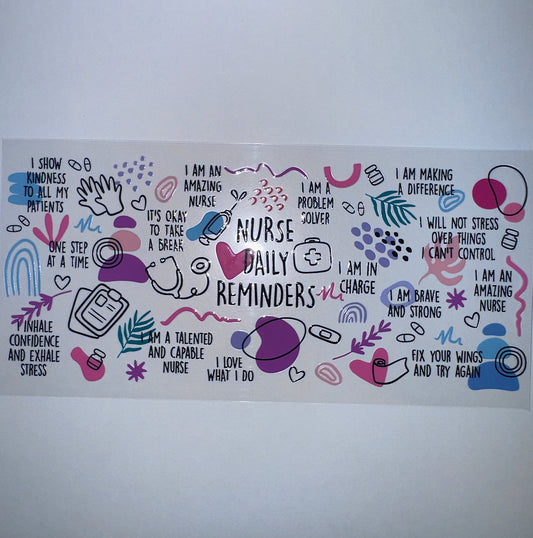 I SHOW
KINDNESS
TO ALL MY
PATIENTS
I AM AN
AMAZING
NURSE
I AM A
PROBLEM
SOLVER
I AM MAKING
A DIFFERENCE
IT'S OKAY
TO TAKE
A BREAK
NURSE
DAILY
REMINDERS
I WILL NOT STRESS
OVER THINGS
I CAN'T CONTROL
ONE STEP
AT A TIME
I AM IN
CHARGE
I AM BRAVE
AND STRONG
I AM AN
AMAZING
NURSE
INHALE
CONFIDENCE
AND EXHALE
STRESS
I AM A TALENTED
AND CAPABLE
NURSE
I LOVE
WHAT I DO
FIX YOUR WINGS
AND TRY AGAIN